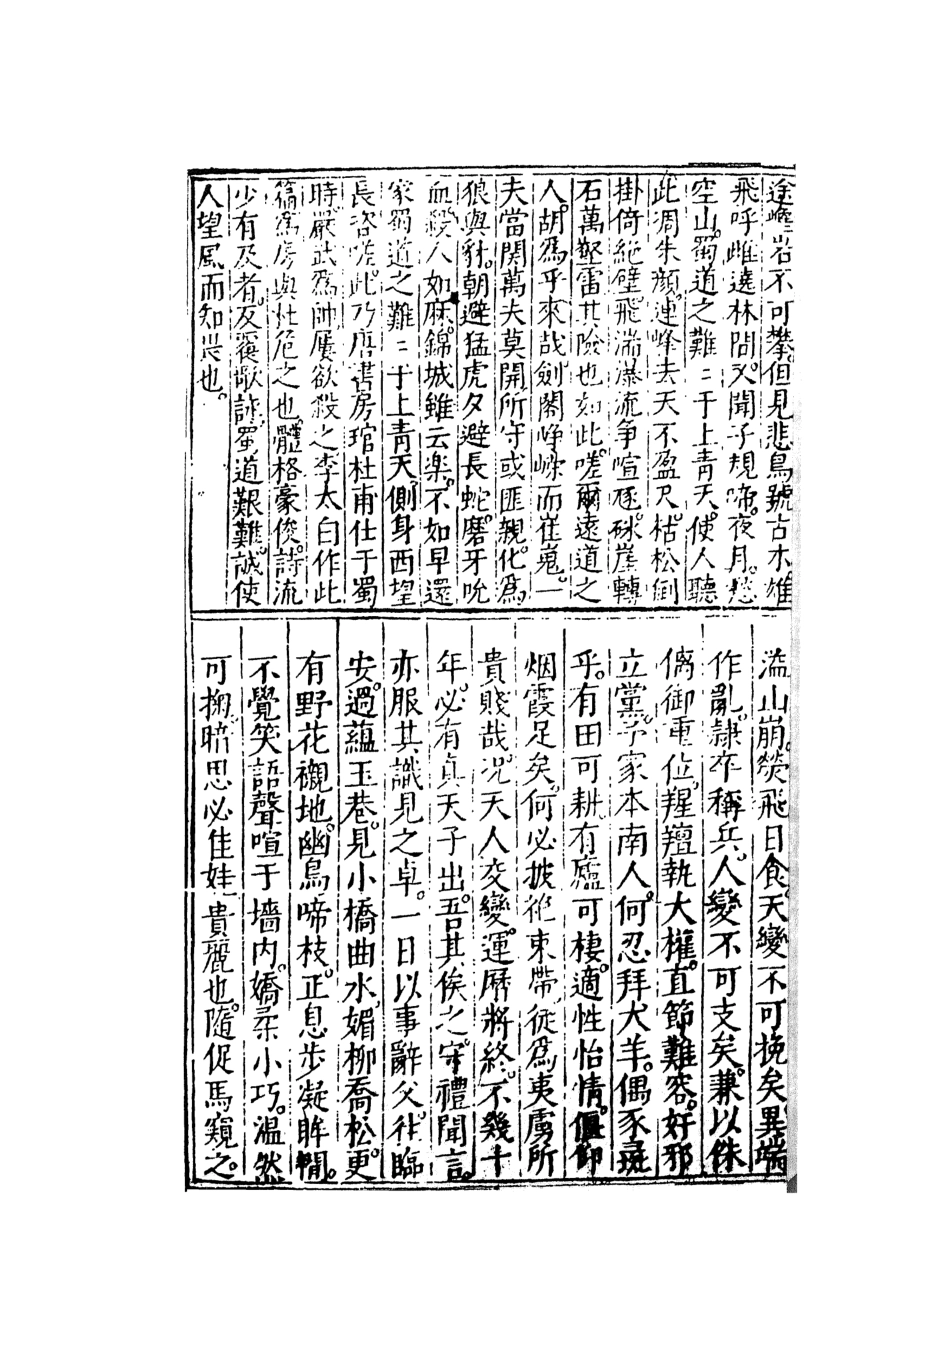 途巉岩不可攀。但見悲鳥號古木。雄
飛呼雌遶林間。又聞子規啼。夜月。愁
空山。蜀道之難〻于上青天。使人聽
此凋朱顔。連峰去天不盈尺。枯松倒
掛倚絶壁。飛湍瀑流争喧豗。砯崖轉
石萬壑雷。其險也如此。嗟爾遠道之
人。胡爲乎來哉。劍閣崢嶸而崔嵬。一
夫當関。萬夫莫開。所守或匪親。化爲
狼與豺。朝避猛虎。夕避長蛇。磨牙吮
血。殺人如麻。錦城雖云楽。不如早還
家。蜀道之難〻于上青天。側身西望
長咨嗟。此乃唐書房琯杜甫仕于蜀
時。嚴武爲帥。屢欲殺之。李太白作此
篇。爲房與杜危之也。體格豪俊。詩流
少有及者。反覆歌詠。蜀道艱難。誠使
人望風而知畏也。
溢。山崩。熒飛。日食。天變不可挽矣。異端
作亂。隷卒稱兵。人變不可支矣。兼以侏
㒧御重位。羶執大權。直節難容。好邪
立黨。予家本南人。何忍拜犬羊。偶豕
乎。有田可耕。有廬可棲。適性怡情。偃仰
烟霞足矣。何必披袍束帶。從爲夷虜所
貴賤哉。况天人交變。運曆將終。不幾十
年。必有真天子出。吾其俟之。守禮聞言。
亦服其識見之卓。一日以事辭父。往臨
安。過蘊玉巷。見小橋曲水。媚柳喬松。更
有野花襯地。幽鳥啼枝。正息步凝眸間。
不覺笑語聲喧于墻内。嬌柔小巧。温然
可掬。暗思必佳娃貴麗也。隨促馬窺之。